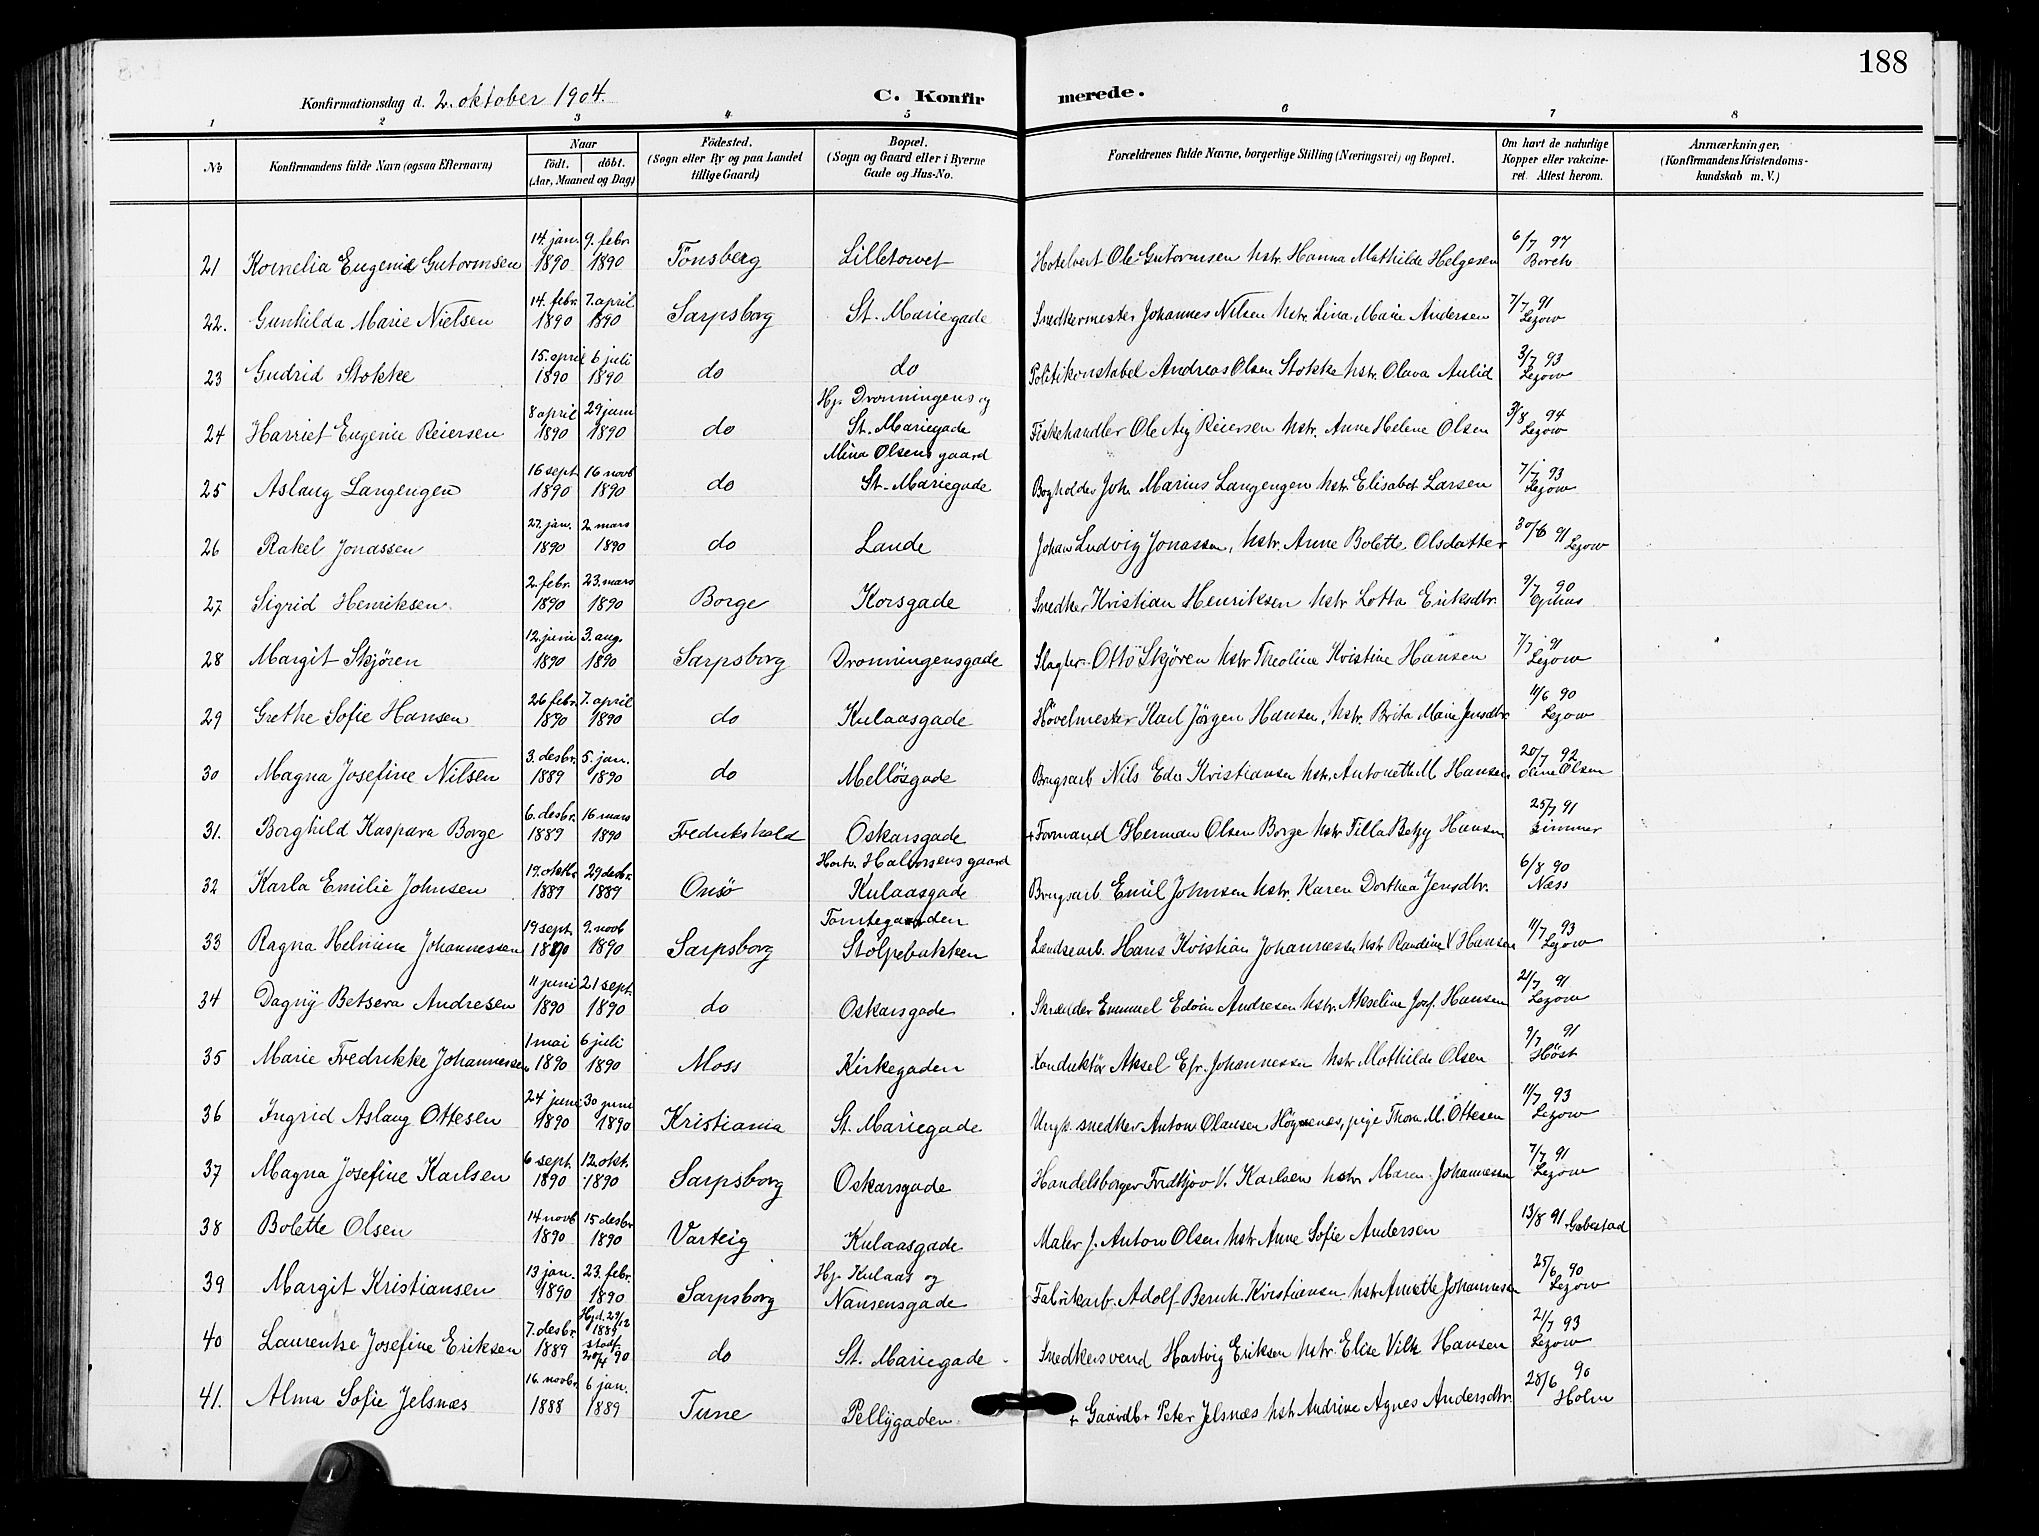 188
Konfirmationsdag d. 2. oktober 1904.
C. Konfirmerede.
1 2 3 4 5 6 7 8
No
Konfirmandens fulde Navn (ogsaa Efternavn)
Naar
födt. döbt.
(Aar, Maaned og Dag)
Födested.
(Sogn eller By og paa Landet
tillige Gaard)
Bopæl.
(Sogn og Gaard eller i Byerne
Gade og Hus-No.
Forældrenes fulde Navne, borgerlige Stilling (Næringsvei) og Bopæl.
Om havt de naturlige
Kopper eller vakcine-
ret. Attest herom.
Anmærkninger,
(Konfirmandens Kristendoms-
kundskab m. V.)
14. jan. 9. febr. 6/7 97
21 Kornelia Eugenie Gutormsen 1890 1890 Tönsberg Lilletorvet Hotelvert Ole Gutormsen hstr. Hanna Mathilde Helgesen Borch
14. febr. 7. april 7/7 91
22. Gunhilda Marie Nielsen 1890 1890 Sarpsborg St. Mariegade Snedkermester Johannes Nilsen hstr. Lina Marie Andersen Lezow
15. april 6 juli 3/7 93
23 Gudrid Stokke 1890 1890 do do Politikonstabel Andreas Olsen Stokke hstr. Olava Aulid Lezow
8 april 29 juni Hj. Dronningens og 3/8 94
24 Harriet Eugenie Reiersen 1890 1890 do St. Mariegade Fiskehandler Ole Aug Reiersen hstr. Anne Helene Olsen Lezow
16 sept. 16 novb Mina Olsens gaard 7/7 93
25 Aslaug Langengen 1890 1890 do St. Mariegade Bogholder Joh. Marius Langengen hstr. Elisabet Larsen Lezow
27. jan. 2. mars
26 Rakel Jonassen 1890 1890 do Lande Johan Ludvig Jonassen, hstr. Anne Bolette Olsdatter 30/6 91 Lezow
2. febr. 23. mars 9/7 90
27 Sigrid Henriksen 1890 1890 Borge Korsgade Snedker Kristian Henriksen hstr Lotta Eriksdtr.
12. juni 3. aug. 7/7 91
28 Margit Skjören 1890 1890 Sarpsborg Dronningensgade Slagter Otto Skjören hstr Theoline Kristine Hansen Lezow
26 febr. 7. april 11/6 90
29 Grethe Sofie Hansen 1890 1890 do Kulaasgade Hövelmester Karl Jörgen Hansen, hstr. Brita Marie Jensdtr. Lezow
3. desbr. 5. jan. 20/7 92
30 Magna Josefine Nilsen 1889 1890 do Mellösgade Brugsarb Nils Edv Kristiansen hstr. Antonette M. Hansen Oline Olsen
6. desbr. 16 mars 25/7 91
31. Borghild Kaspara Borge 1889 1890 Fredrikshald Oskarsgade + Formand Herman Olsen Borge hstr Tilla Betzy Hansen Zimmer
19. oktbr. 29 desbr. Hartv. Halvorsens gaard 6/8 90
32 Karla Emilie Johnsen 1889 1889 Onsö Kulaasgade Brugsarb Emil Johnsen hstr. Karen Dorthea Jensdtr. Næss
19 sept. 9. novb Tomtegaarden 11/7 93
33 Ragna Helmine Johannessen 1890 1890 Sarpsborg Stolpebakken Lændsearb. Hans Kristian Johannessen hstr Randine K Hansen Lezow
11 juni 21 sept. 21/7 91
34 Dagny Betsera Andresen 1890 1890 do Oskarsgade Skrædder Emmuel Edvin Andresen hstr. Akseline Josf. Hansen Lezow
1 mai 6 juli 9/7 91
35 Marie Fredrikke Johannessen 1890 1890 Moss Kirkegaden Konduktör Aksel Efr. Johannessen hstr Mathilde Olsen Höst
24 juni 30 juni 11/7 93
36 Ingrid Aslaug Ottesen 1890 1890 Kristiania St. Mariegade Ungk. snedker Anton Olausen Högnenes, pige Thora M. Ottesen Lezow
6 sept. 12. okt. 7/7 91
37 Magna Josefine Karlsen 1890 1890 Sarpsborg Oskarsgade Handelsborger Fridtjov V. Karlsen hstr Maren Johannessen Lezow
14 novb 15 desbr
38 Bolette Olsen 1890 1890 Varteig Kulaasgade Maler J. Anton Olsen hstr Anne Sofie Andersen 13/8 91 Gabestad
13 jan. 23. febr. Hj. Kulaas og 25/6 90
39 Margit Kristiansen 1890 1890 Sarpsborg Nansensgade Fabrikarb. Adolf Bernh. Kristiansen hstr Anette Johannesen Lezow
7. desbr. Hjd. 29/12 1889 stadf. 21/7 93
40 Laurentze Josefine Eriksen 1889 20/4 90 do St. Mariegade Snedkersvend Hartvig Eriksen hstr. Elise Vilh Hansen Lezow
16. novbr. 6 jan. 28/6 90
41. Alma Sofie Jelsnæs 1888 1889 Tune Pellygaden + Gaardbr Peter Jelsnæs hstr Andrine Agnes Andersdtr. Holm